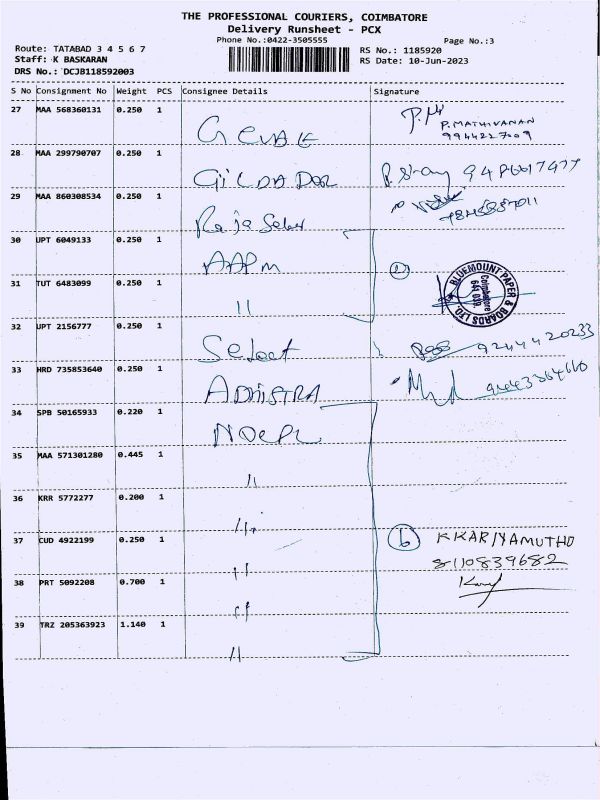 THE PROFESSIONAL COURIERS, COIMBATORE
Delivery Runsheet - PCX
Phone No.:0422-3505555
Page No.:3
Route: TATABAD 3 4 5 6 7
RS No.: 1185920
Staff: K BASKARAN
RS Date: 10-Jun-2023
DRS No.: DCJB118592003
S No Consignment No Weight PCS Consignee Details Signature
27 MAA 568360131 0.250 1
P.MATHIVANAN
9944227009
28 MAA 299790707 0.250 1
29 MAA 860308534 0.250 1
Raja Selvi
30 UPT 6049133 0.250 1 AAPM
31 TUT 6483099 0.250 1 "
BLUEMOUNT PAPER & BOARDS LTD.
Coimbatore
641 019.
32 UPT 2156777 0.250 1 Select 9244420233
33 HRD 735853640 0.250 1 ADHISTRA
34 SPB 50165933 0.220 1 NDEPL
35 MAA 571301280 0.445 1 "
36 KRR 5772277 0.200 1 "
37 CUD 4922199 0.250 1 " 6 KKARIYAMUTHU
8110839682
38 PRT 5092208 0.700 1 "
39 TRZ 205363923 1.140 1 "